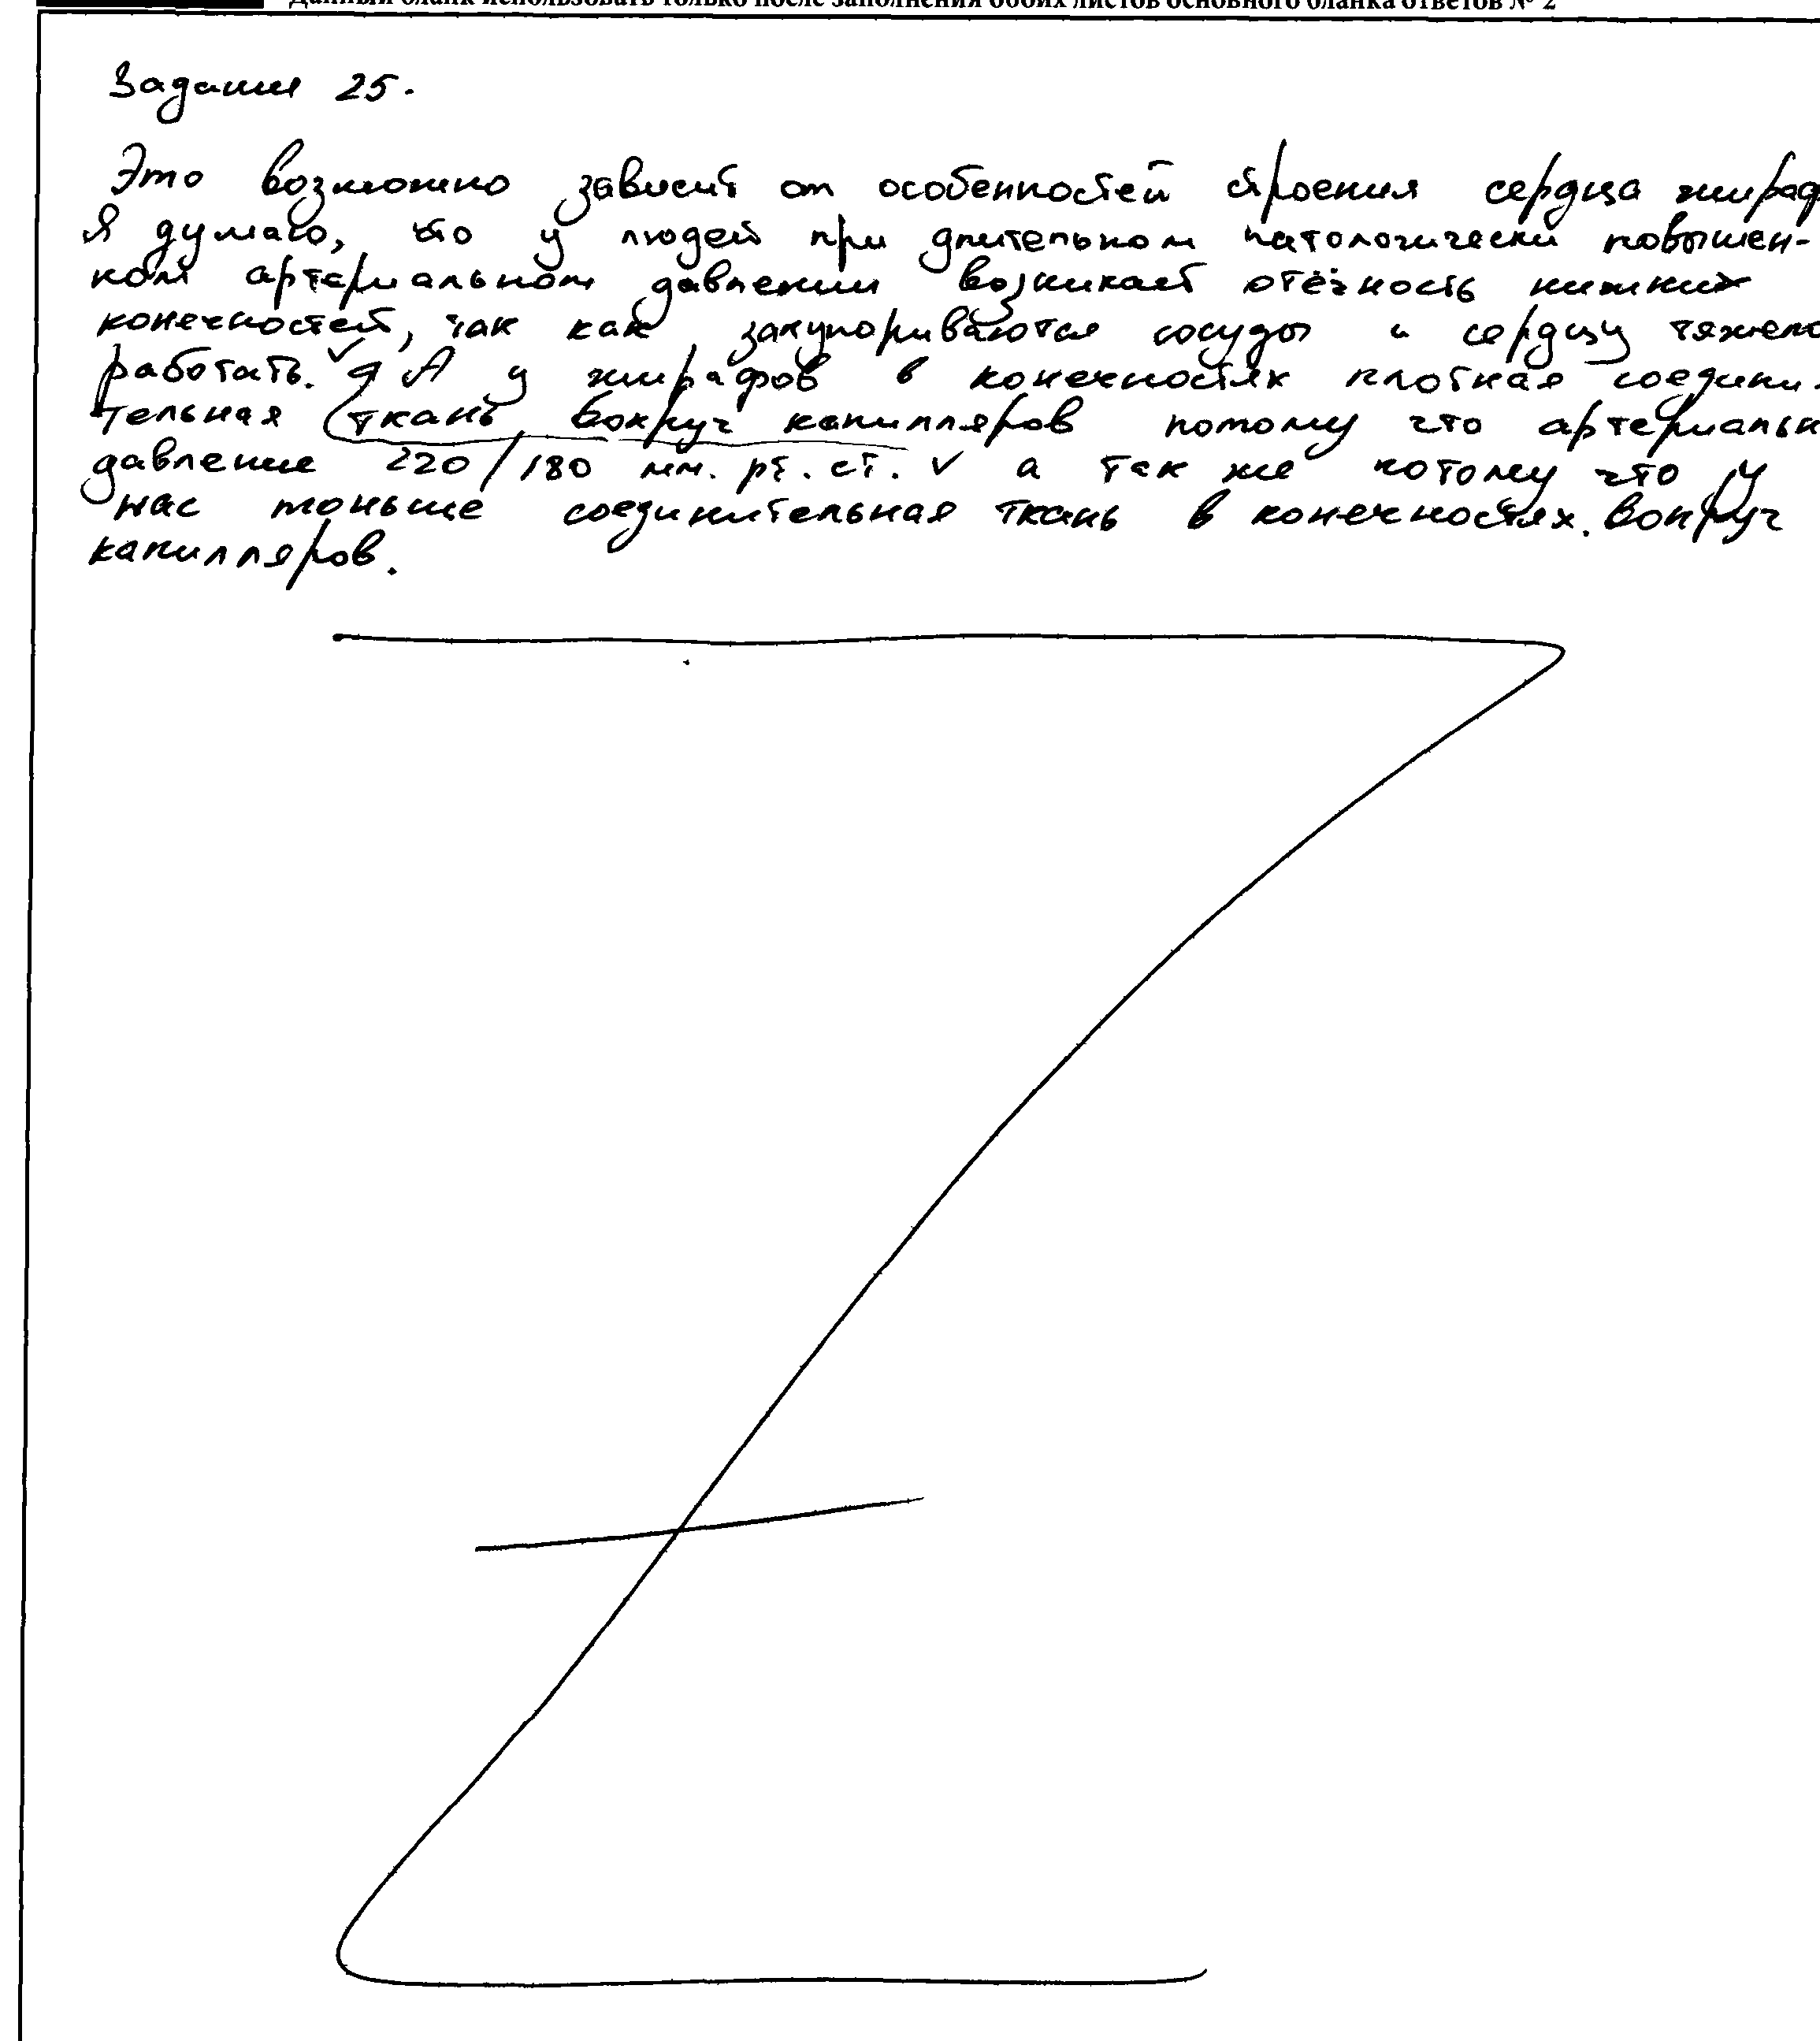 Данный бланк использовать только после заполнения обоих листов основного бланка ответов № 2
Задание 25.
Это возможно зависит от особенностей строения сердца жираф
Я думаю, что у людей при длительном патологически повышен-
ном артериальном давлении возникает отёчность нижних
конечностей, так как закупориваются сосуды и сердцу тяжело
работать. А у жирафов в конечностях плотная соедини-
тельная ткань вокруг капилляров потому что артериальн
давление 220/180 мм. рт. ст. а так же потому что у
нас тоньше соединительная ткань в конечностях. вокруг
капилляров.